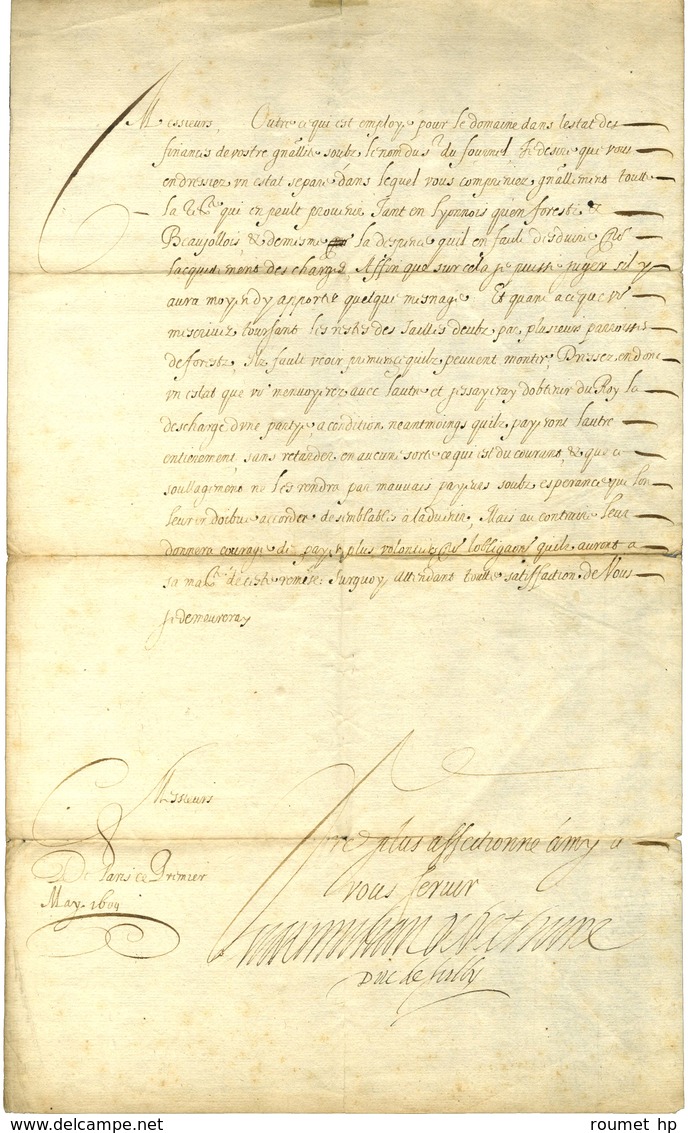 Messieurs, Outre ce qui est employé pour le domaine dans lestat des
finances de vostre gnallité soubz le nom du sr du fournel Je desire que vous
endressiez un estat separé dans lequel vous compreniez gnallement toutte
la qui en peult provenir Tant en Lyonnois quen forestz &
Beaujollois, & demesme la despence quil en fault desduire
lacquictement des charges, Affin que sur cela je puisse juger sil y
aura moyen dy apporter quelque mesnage Et quant a ce que vs
mescrivez touchant les restes des Tailles deubz par plusieurs parroisses
de forestz, Ilz fault veoir premier ce quilz peuvent monter, Dressez en donc
un estat que vs menvoyerez avec lautre et jessayeray dobtenir du Roy la
descharge dune partye, a condition neantmoings quilz payeront lautre
entierement, sans retarder en aucune sorte ce qui est du courant, & que ce
soullagement ne les rendra pas mauvais payeurs soubz esperance que lon
leur en doibve accorder de semblables à ladvenir, Mais au contraire leur
donnera courage de payer plus volontiers lobligaon quilz auront a
sa maté de ceste remise. Surquoy Attendant toutte satisfaction de Vous
Je demeureray
Messieurs
Vre plus affectionné amy a
vous servir
De Paris ce Premier
May. 1609
Maximilian de Bethune
Duc de Sully
roumet hp